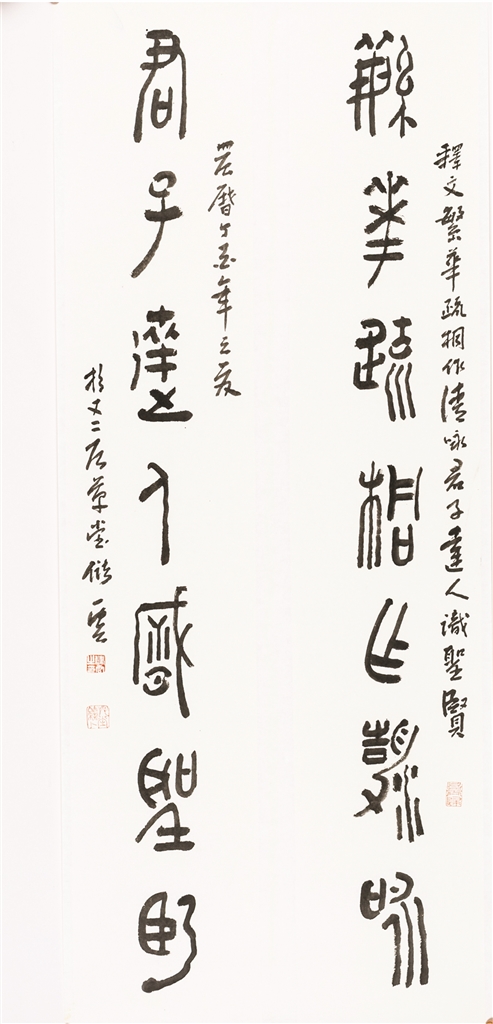 釋文繁華疏桐作清詠君子達人識聖賢
繁華疏桐作清詠
農曆丁酉年之夏
君子達人識聖賢
於又二居草堂儲雲